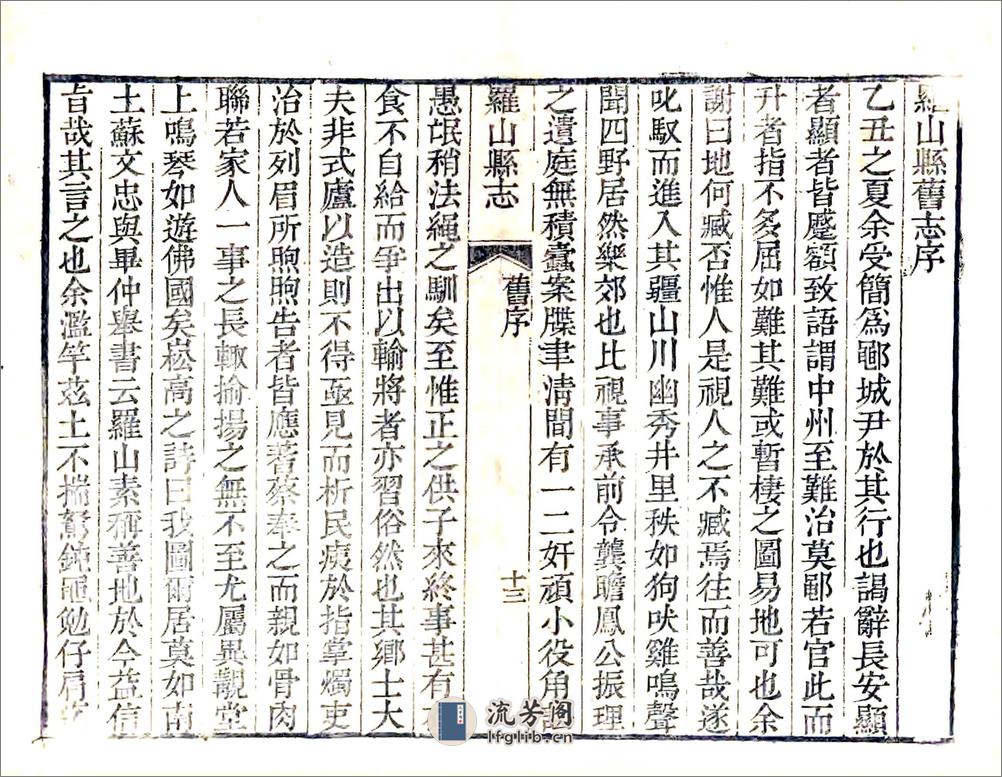 羅山縣舊志序
乙丑之夏余受簡爲鄳城尹於其行也謁辭長安顯
者顯者皆蹙額致語謂中州至難治莫鄳若官此而
升者指不多屈如難其難或暫棲之圖易地可也余
謝曰地何臧否惟人是視人之不臧焉往而善哉遂
叱馭而進入其疆山川幽秀井里秩如狗吠雞鳴聲
聞四野居然樂郊也比視事承前令龔瞻鳳公振理
之遺庭無積蠹案牒聿淸間有一二奸頑小役角
羅山縣志
舊序
十三
愚氓稍法繩之馴矣至惟正之供子來終事甚有
食不自給而爭出以輸將者亦習俗然也其鄉士大
夫非式廬以造則不得亟見而析民疾於指掌燭吏
治於列眉所煦煦告者皆應蓍蔡奉之而親如骨肉
聯若家人一事之長輙揄揚之無不至尤屬異覯堂
上鳴琴如遊佛國矣崧高之詩曰我圖爾居莫如南
土蘇文忠與畢仲舉書云羅山素稱善地於今益信
旨哉其言之也余濫竽茲土不揣駑鈍黽勉仔肩
流芳阁
lfglib.cn